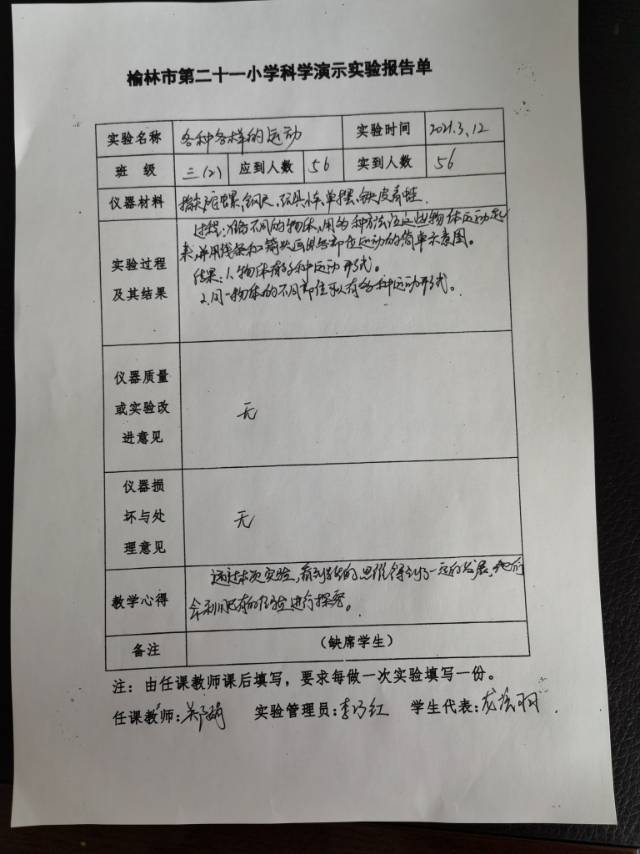 榆林市第二十一小学科学演示实验报告单
实验名称 各种各样的运动 实验时间 2021.3.12
班 级 三(2) 应到人数 56 实到人数 56
仪器材料 陀螺、钢尺、玩具小车、单摆、铁皮青蛙
过程:准备不同的物体,用各种方法让这些物体运动起
实验过程 来,并用线条和箭头画出各部位运动的简单示意图。
及其结果 结果:1.物体有多种运动形式。
2.同一物体的不同部位可以有各种运动形式。
仪器质量
或实验改 无
进意见
仪器损
坏与处 无
理意见
通过本次实验,看到学生的思维得到了一定的发展,他们
教学心得 会利用已有的经验进行探究。
备注 (缺席学生)
注:由任课教师课后填写,要求每做一次实验填写一份。
任课教师: 实验管理员:李巧红 学生代表: